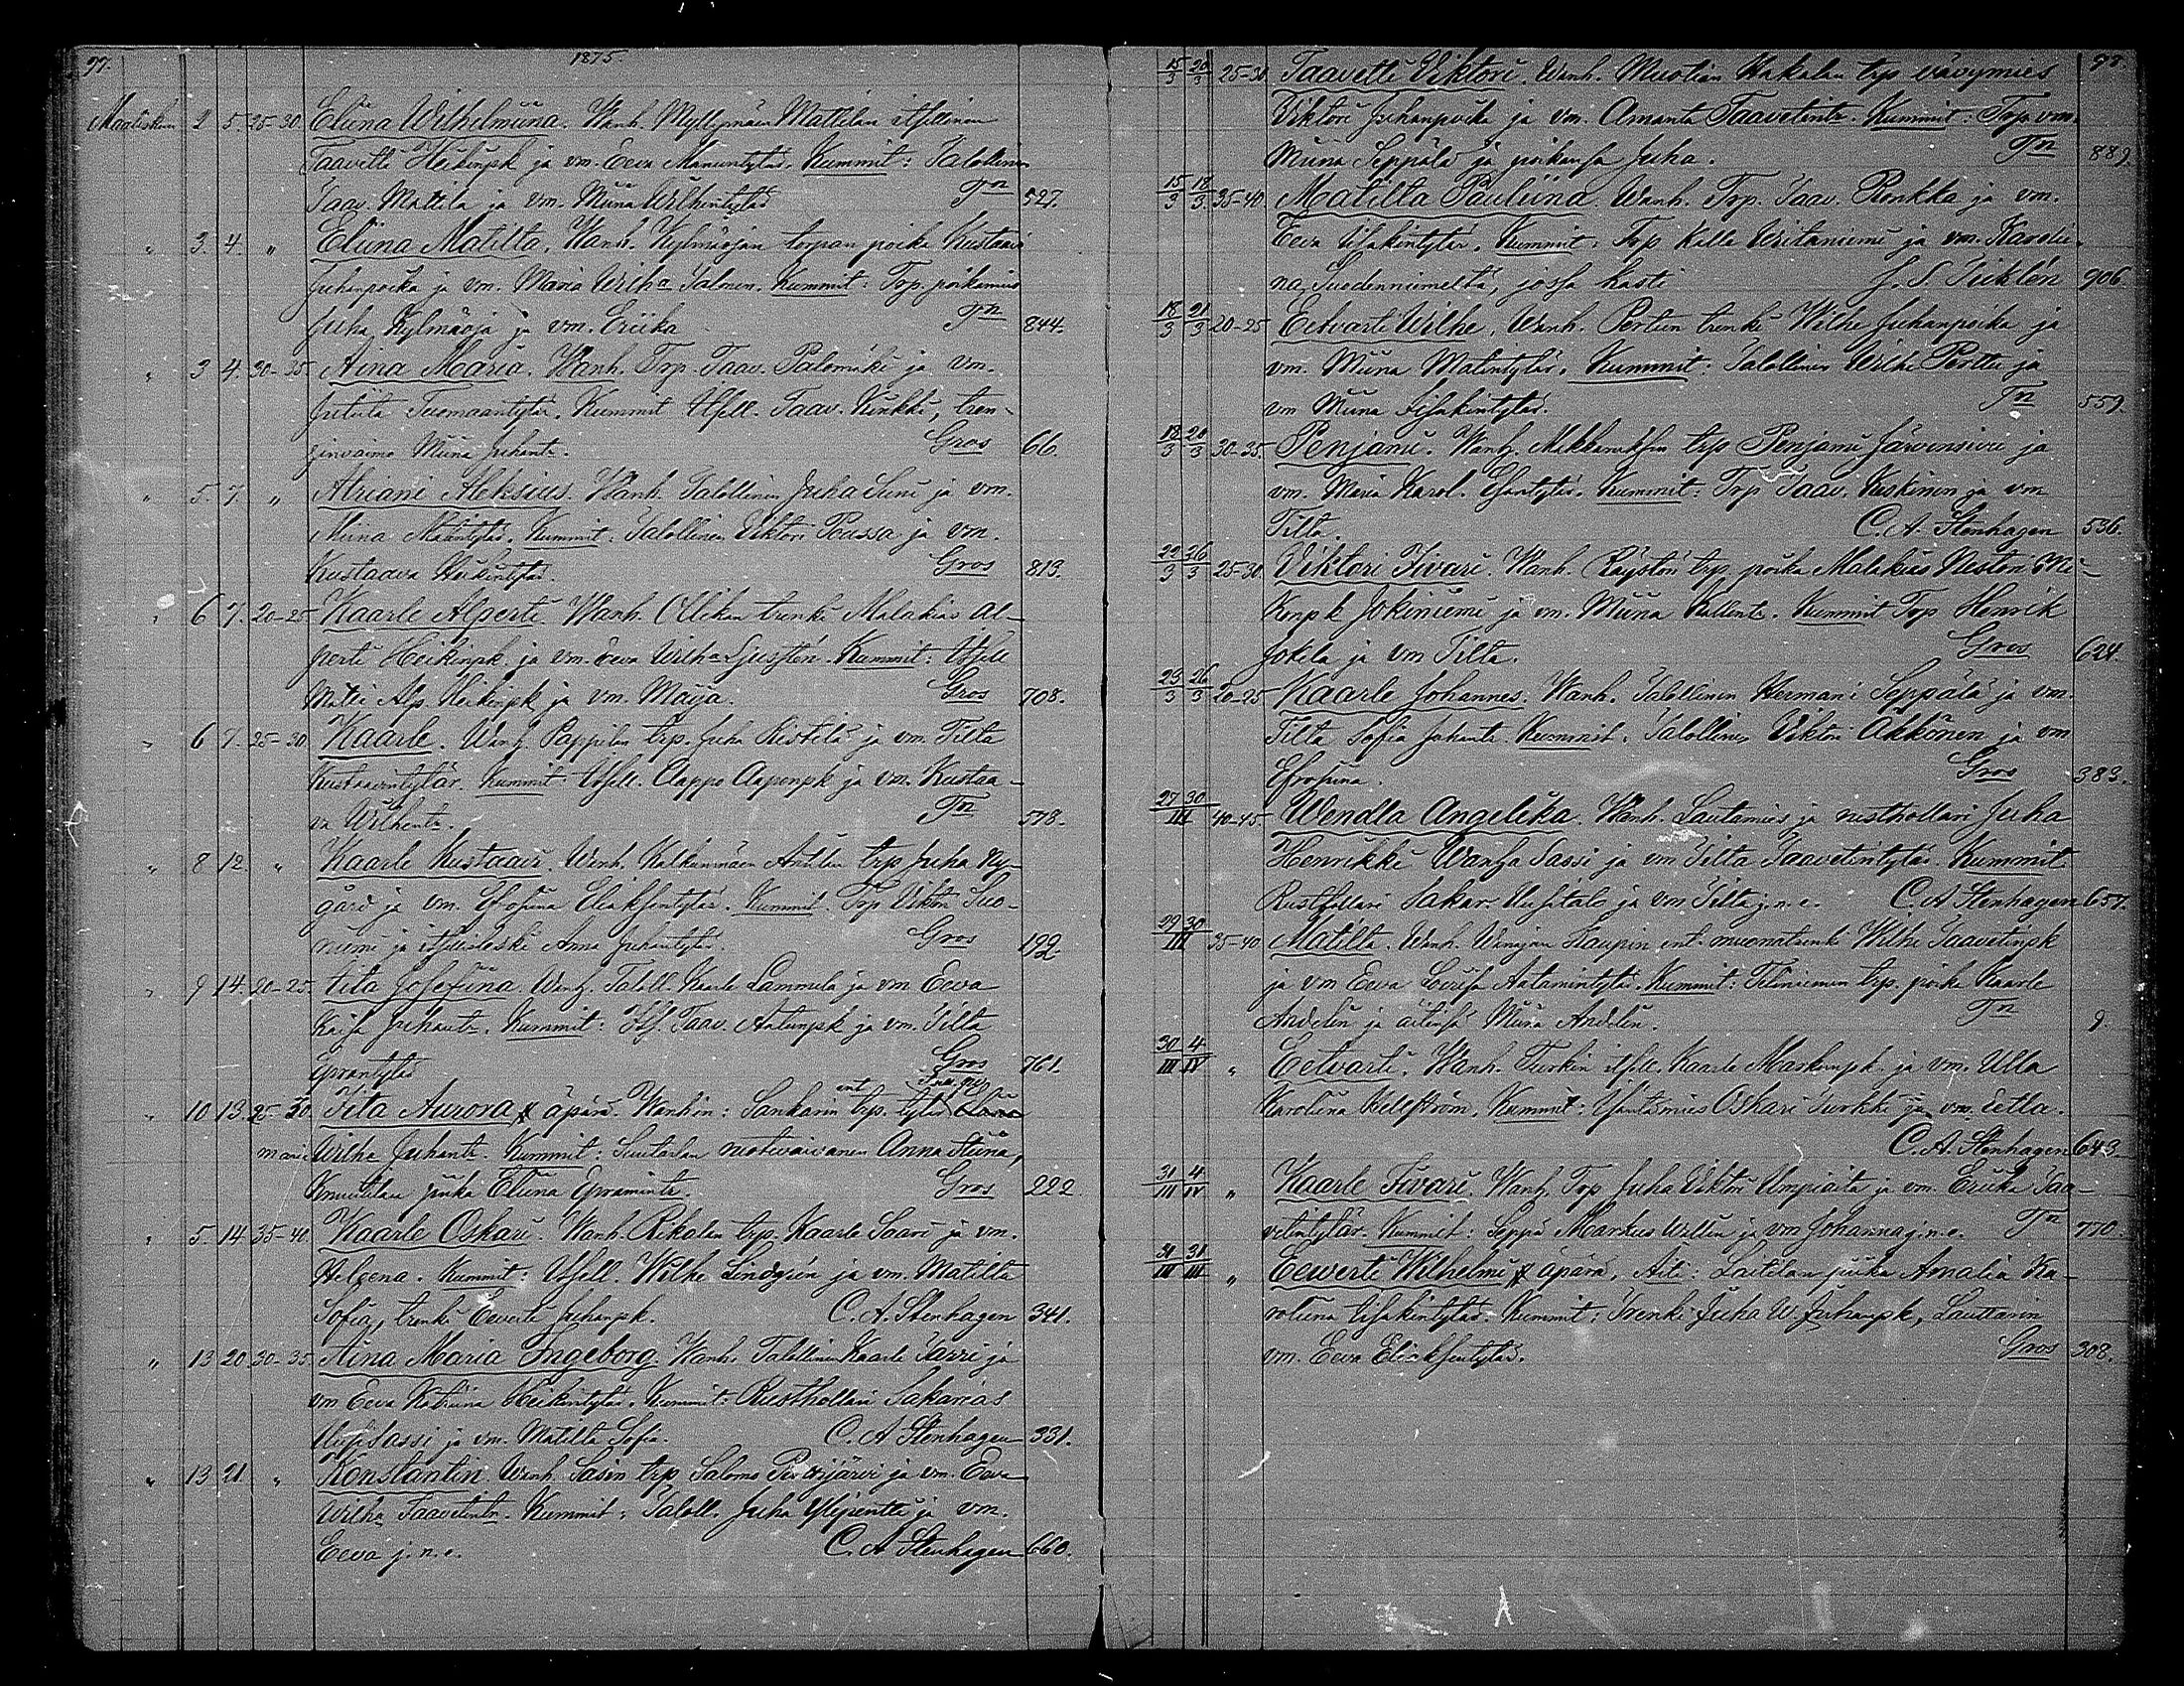 97. 1875.
Maaliskuu 2 5. 25-30 Eliina Wilhelmiina. Wanh. Myllymäen Mattilan itsellinen
Taavetti Heikinpk ja vm. Eeva Manuntytär. Kummit: Talollinen
Taav. Mattila ja vm. Miina Wilhintytär Tn 527.
" 3. 4. " Eliina Matilta. Wanh. Kylmäojan torpan poika Kustaavi
Juhanpoika ja vm. Maria Wilha Salonen. Kummit: Trp. poikamies
Juha Kylmäoja ja vm. Eriika Tn 844.
" 3 4. 30-35 Aina Maria. Wanh. Trp. Taav. Palomäki ja vm.
Juliita Tuomaantytär. Kummit Itsell. Taav. Kinkki, tren-
ginvaimo Miina Juhantr. Gros 66.
" 5. 7. " Atriani Aleksius. Wanh. Talollinen Juha Suni ja vm.
Miina Matintytär. Kummit: Talollinen Viktori Paassa ja vm.
Kustaava Heikintytär. Gros 813.
" 6 7. 20-25 Kaarle Alpertti Wanh. Ollikan trenki Malakias Al-
pertti Heikinpk. ja vm. Eeva Wilha Ljustén. Kummit: Itsell
Matti Alp. Heikinpk ja vm. Maija. Gros 708.
" 6 7. 25-30 Kaarle. Wanh. Pappilan trp. Juha Ristilä ja vm. Tilta
Kustaavintytär. Kummit Itsell. Elappo Aapenpk ja vm. Kustaa-
va Wilhentr. Tn 578.
" 8 12. " Kaarle Kustaavi. Wanh. Kalkunmäen Anttilan trp Juha Ny-
gård ja vm. Efrosiina Eliaksentytär. Kummit Trp. Viktor Suo-
niemi ja itsellisleski Anna Juhantytär. Gros 192
" 9 14. 20-25. Tita Josefiina. Wanh. Taloll. Kaarle Lammela ja vm Eeva
Kaisa Juhantr. Kummit: Its. Taav. Antinpk ja vm. Tilta
Eprantytär Gros 761.
" 10 13. 25-30. Tita Aurora, äpärä. Wanhin: Sankarin ent trp. tytär
Wilha Juhantr. Kummit: Suutarlan ruotuvaivanen Anna Stiina,
Knuutilan piika Eliina Epramintr. Gros 222
" 5. 14 35-40. Kaarle Oskari. Wanh. Rikalan trp. Kaarle Saari ja vm.
Helena. Kummit: Itsell. Wilhe Lindgrén ja vm. Matilta
Sofia, trenki Eeverti Juhanpk. C. A. Stenhagen 341.
" 13 20 30-35 Aina Maria Ingeborg. Wanh. Talollinen Kaarle Jarri ja
vm Eeva Katriina Heikintytär. Kummit: Rusthollari Sakarias
Uusi Sassi ja vm. Matilta Sofia. C. A Stenhagen 331.
" 13 21 " Konstantin. Wanh. Sasin trp Salomo Pirttijärvi ja vm. Eeva
Wilha Taavetintr. Kummit: Taloll. Juha Ylipentti ja vm.
Eeva j. n. e. C. A Stenhagen 660.
15/3 20/3 25-30 Taavetti Viktori. Wanh. Muotian Hakalan trp vävymies 98.
Viktori Juhanpoika ja vm. Amanta Taavetintr. Kummit: Trp. vm.
Miina Seppälä ja poikansa Juha. Tn 889.
15/3 18/3 35-40 Matilta Pauliina. Wanh. Trp. Taav. Ronkka ja vm.
Eeva Iisakintytär. Kummit: Trp Kalle Writaniemi ja vm. Karolii-
na Suodenniemeltä, jossa kasti J. S. Ticklén 906
18/3 21/3 20-25 Eetvartti Wilhe. Wanh. Pertun trenki Wilhe Juhanpoika ja
vm. Miina Matintytär. Kummit: Talollinen Wilhe Perttu ja
vm Miina Iisakintytär. Tn 559.
18/3 20/3 30-35. Penjami. Wanh. Makkaruksen trp Penjami Järvensivu ja
vm. Maria Karol. Esantytär. Kummit: Trp Taav. Keskinen ja vm
Tilta. C. A. Stenhagen 536.
22/3 26/3 25-30. Viktori Iivari. Wanh. Räystön trp. poika Malakias Nestori Mi-
konpk Jokiniemi ja vm. Miina Kallentr. Kummit Trp Henrik
Jokela ja vm Tilta. Gros 624.
23/3 26/3 20-25 Kaarle Johannes. Wanh. Talollinen Hermani Seppälä ja vm.
Tilta Sofia Juhantr. Kummit. Talollinen Viktor Äkkönen ja vm
Efrosiina. Gros 383.
27/III 30 40-45. Wendla Angelika. Wanh. Lautamies ja rusthollari Juha
Henrikki Wanha Sassi ja vm Tilta Taavetintytär. Kummit
Rusthollari Sakar. Uusitalo ja vm Tilta j. n. e. C. A Stenhagen 657.
29/III 30 35-40 Matilta. Wanh. Wanajan Kaupin ent. muonatrenki Wilhe Taavetinpk
ja vm Eeva Loviisa Aatamintytär. Kummit: Tiliniemen trp. poika Kaarle
Andelin ja äitinsä Miina Andelin. Tn 9.
30/III 4/IV " Eetvartti. Wanh. Turkin itsell. Kaarle Markunpk. ja vm. Ulla
Karoliina Hellström. Kummit: Isäntämies Oskari Turkki ja vm. Eetla.
C. A. Stenhagen 643.
31/III 4/IV " Kaarle Iivari. Wanh. Trp Juha Viktor Umpiaita ja vm. Eriika Taa-
vetintytär. Kummit: Seppä Markus Wellin ja vm Johanna j. n. e. Tn 770.
31/III 31/III " Eewertti Wilhelmi, äpärä. Äiti: Laitilan piika Amalia Ka-
roliina Iisakintytär. Kummit: Trenki Juha W. Juhanpk, Lauttarin
vm. Eeva Eliaksentytär. Gros 308.